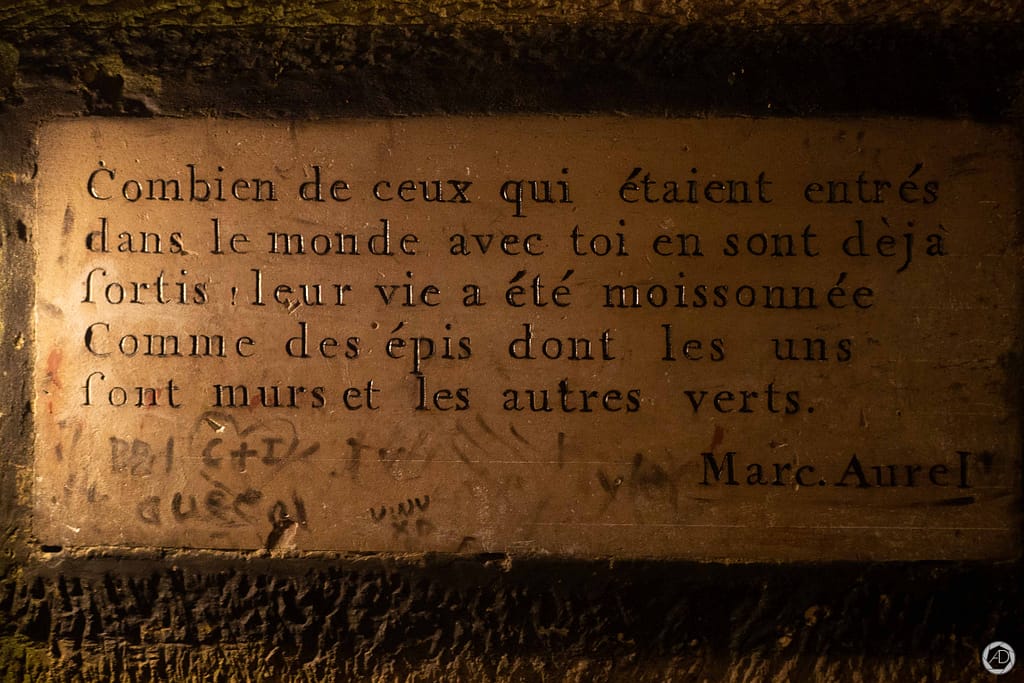 Combien de ceux qui étaient entrés
dans le monde avec toi en sont dèjà
ſortis, leur vie a été moissonnée
Comme des épis dont les uns
ſont murs et les autres verts.
Marc. Aurel
C+I
AD